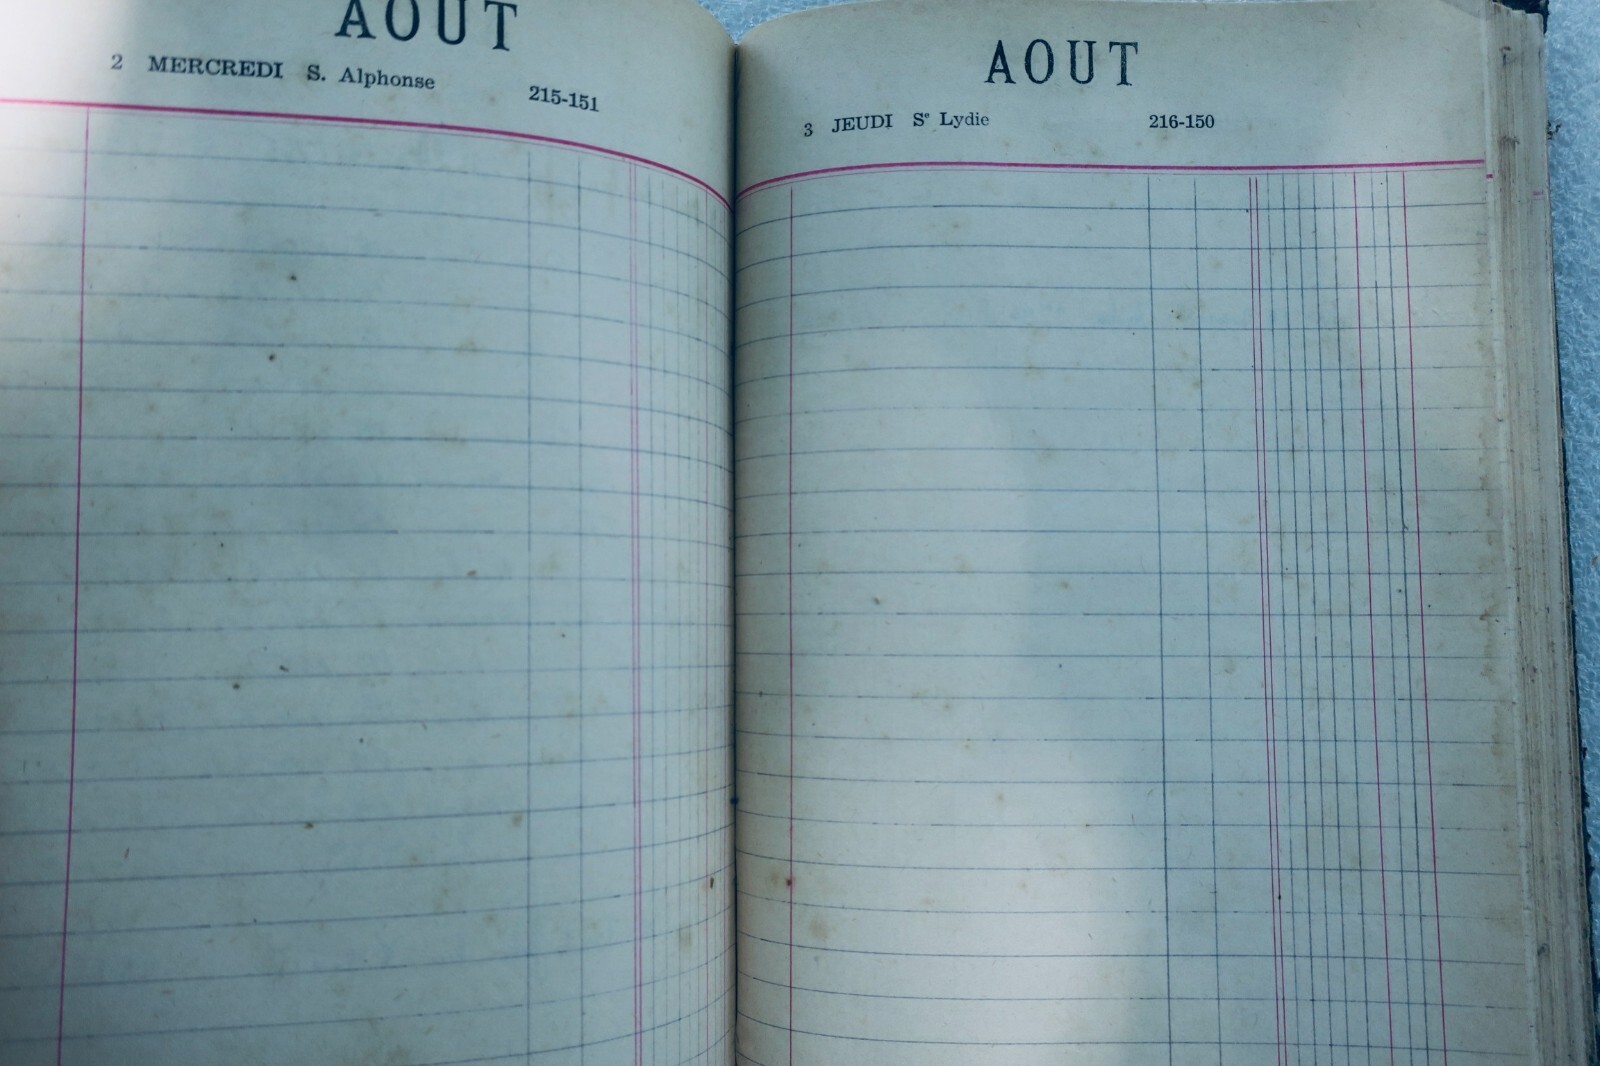 AOUT
2 MERCREDI S. Alphonse 215-151
AOUT
3 JEUDI Sᵉ Lydie 216-150